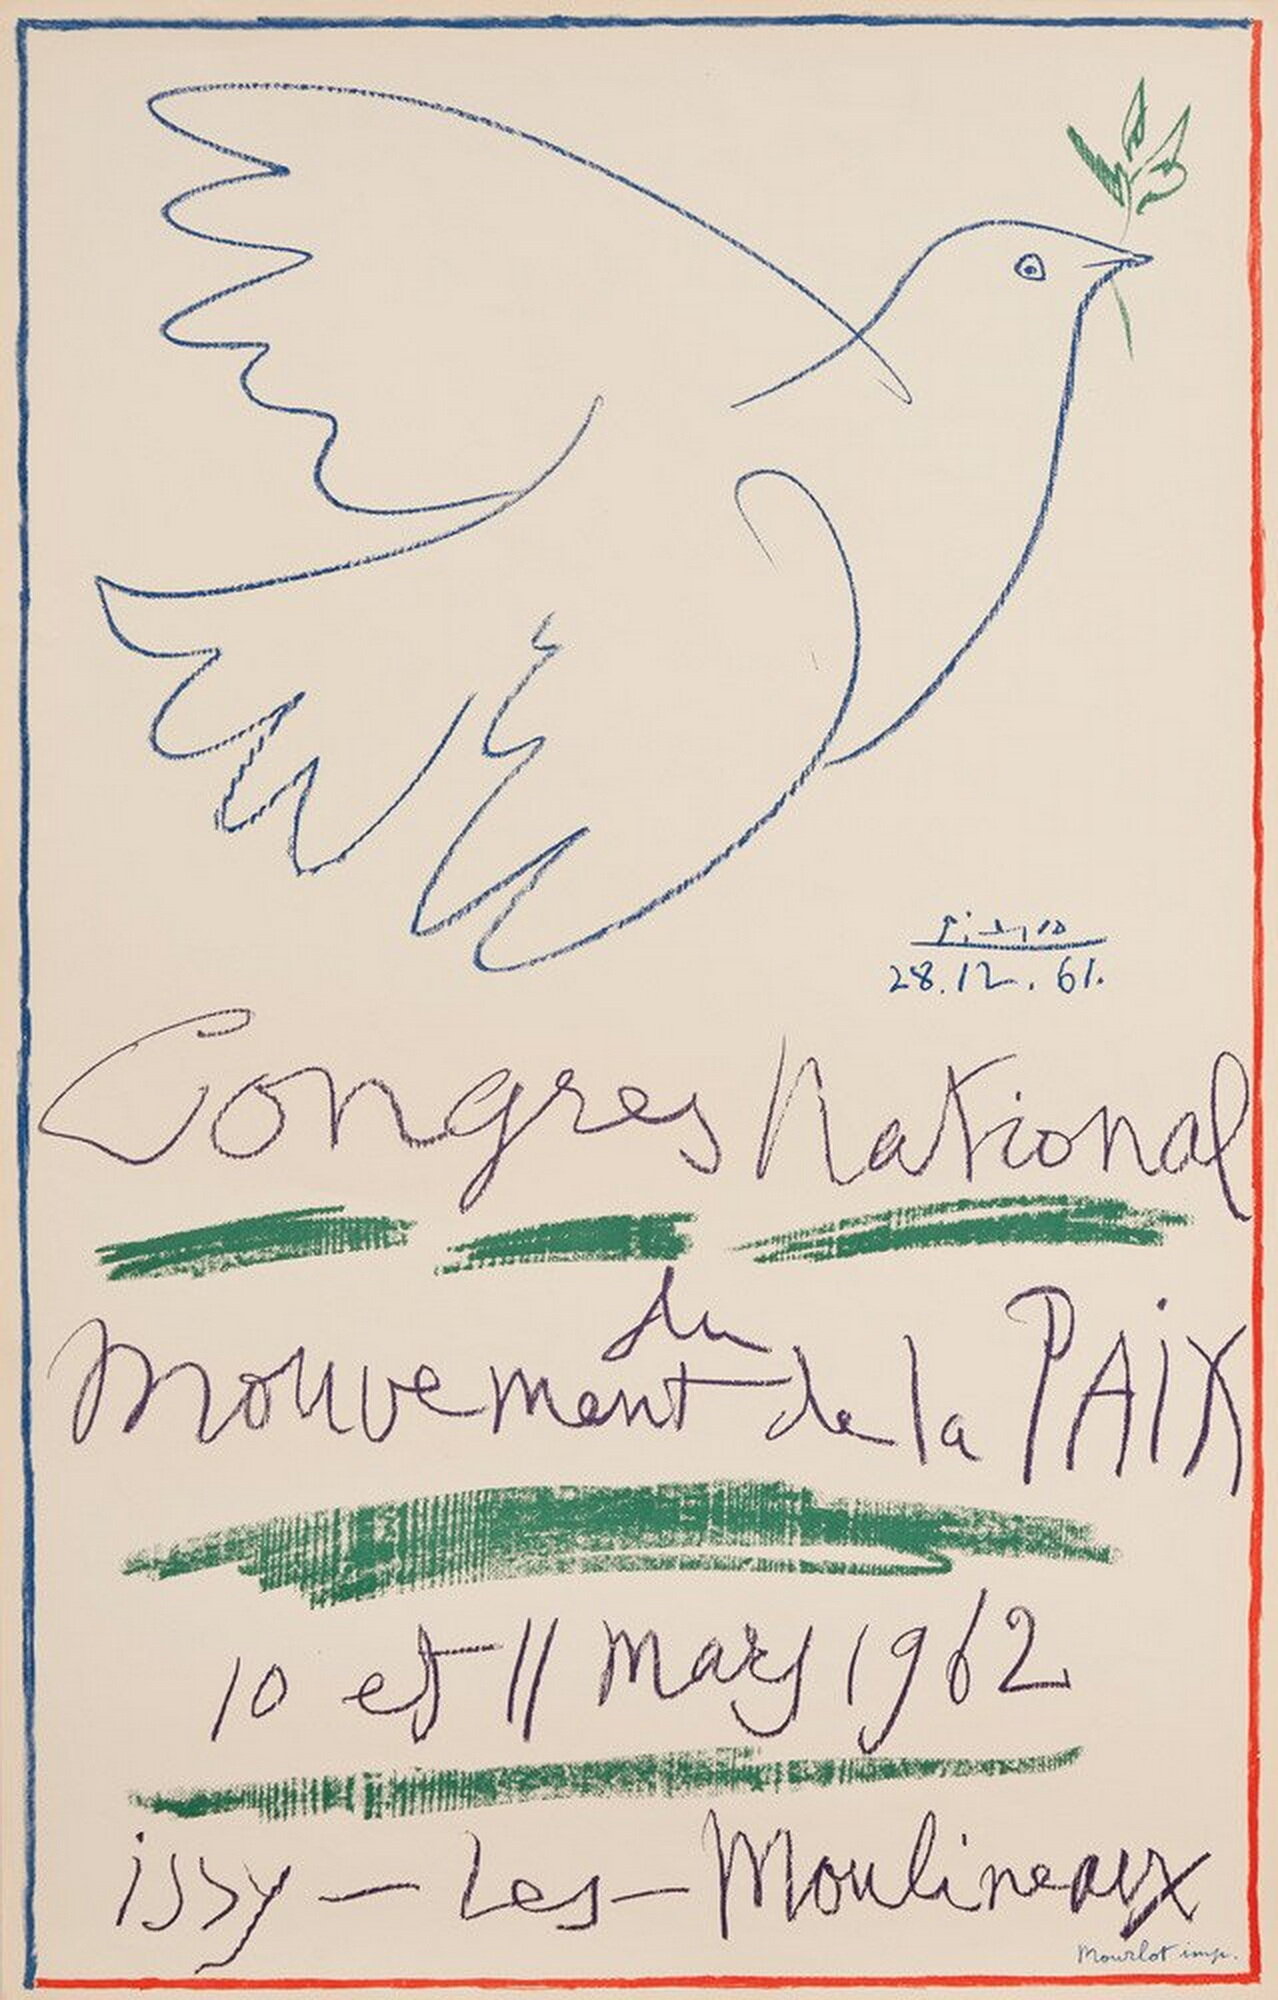 Picasso
28.12.61.
Congres National
du
mouvement de la PAIX
10 et 11 mars 1962
issy-Les-Moulineaux
Mourlot imp.